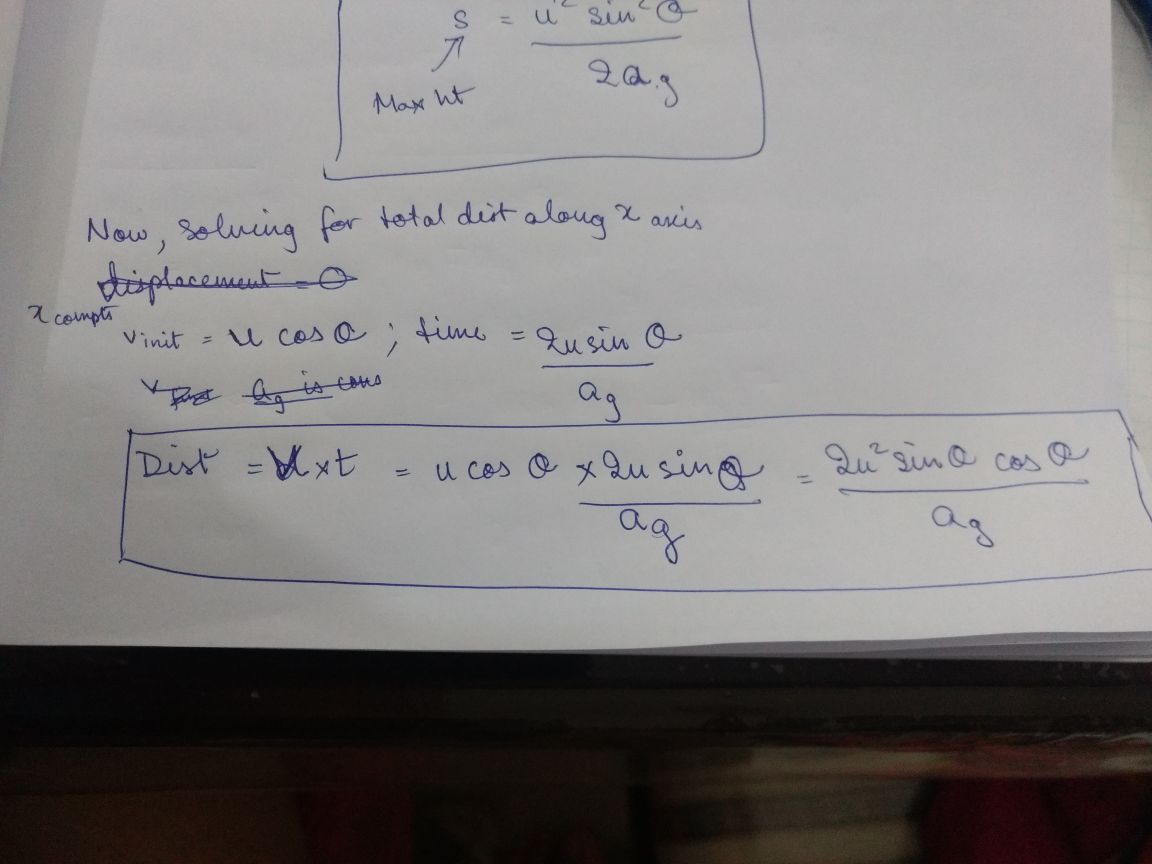 s = u² sin² θ / 2a.g
Max ht
Now, solving for total dist along x axis
displacement = 0
x compts
vinit = u cos θ ; time = 2u sin θ / ag
ag is cons
Dist = u × t = u cos θ × 2u sin θ / ag = 2u² sin θ cos θ / ag